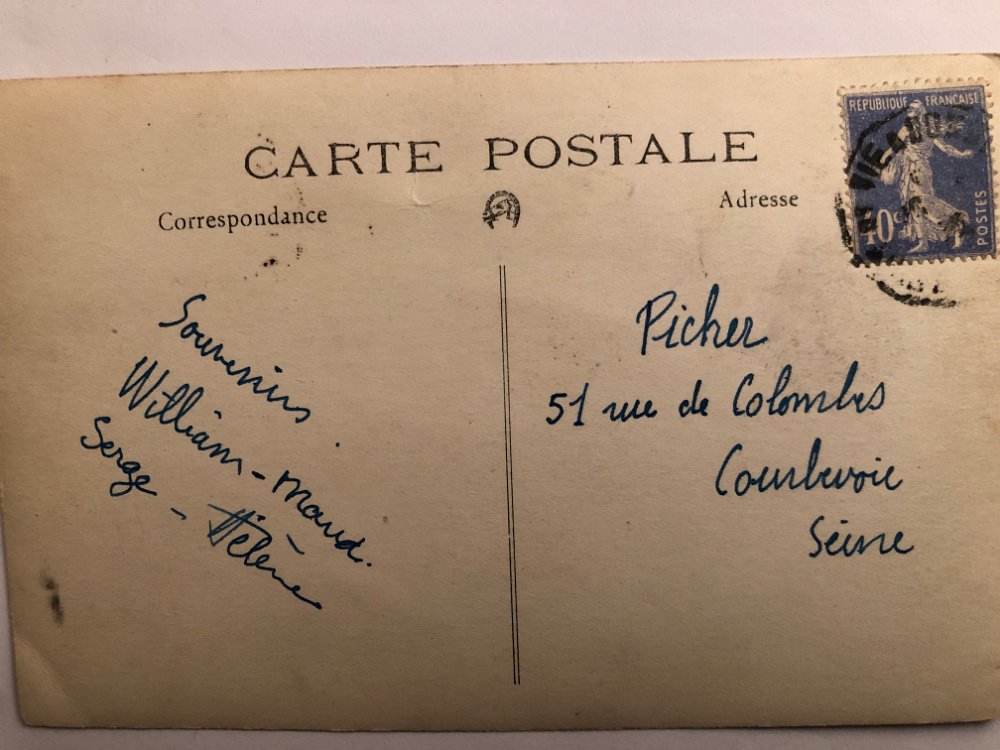 CARTE POSTALE
Correspondance
Adresse
REPUBLIQUE FRANÇAISE
40c
POSTES
Souvenirs.
William - Maud.
Serge - Hélène
Picher
51 rue de Colombes
Courbevoie
Seine